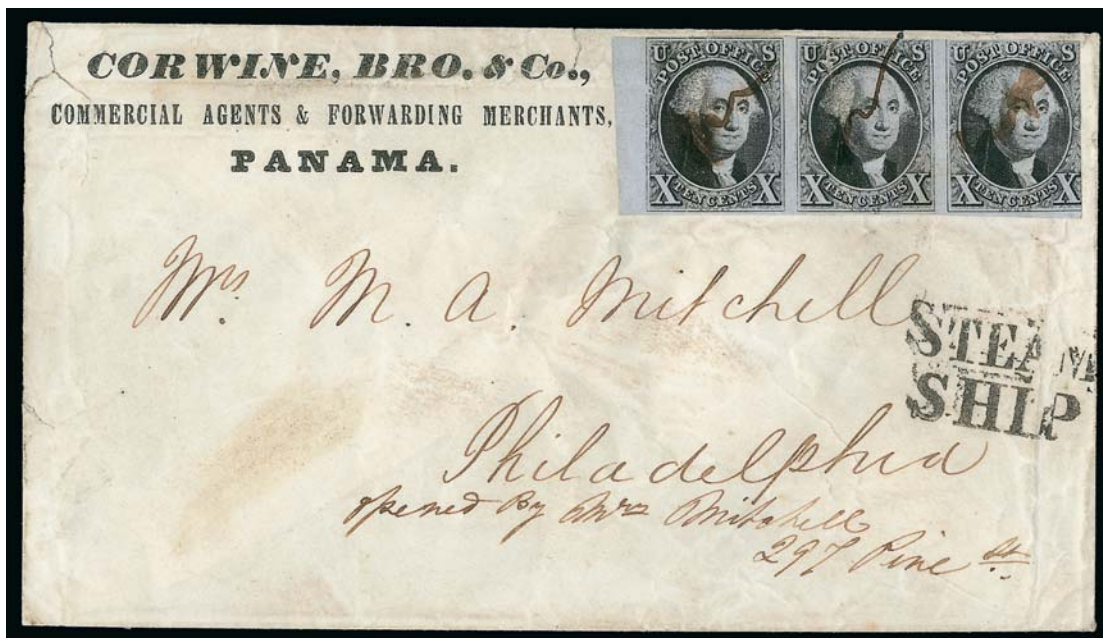 CORWINE, BRO. & Co.,
COMMERCIAL AGENTS & FORWARDING MERCHANTS,
PANAMA.
U S
POST OFFICE
X TEN CENTS X
U S
POST OFFICE
X TEN CENTS X
U S
POST OFFICE
X TEN CENTS X
Mrs. M. A. Mitchell
STEAM
SHIP
Philadelphia
opened By Mrs Mitchell
297 Pine St.